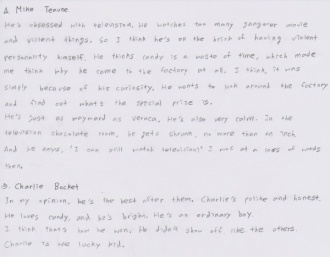 A. Mike Teavee
He's obsessed with television. He watches too many gangster movie
and violent things. So I think he's on the brink of having violent
personality himself. He thinks candy is a waste of time, which made
me think why he came to the factory at all. I think, it was
simply because of his curiosity. He wants to look around the factory
and find out what's the special prize is.
He's just as wayward as Veruca. He's also very calm. In the
television chocolate room, he gets shrunk, no more than an inch.
And he says, 'I can still watch television!' I was at a loss of words
then.
B. Charlie Bucket
In my opinion, he's the best after them. Charlie's polite and honest.
He loves candy, and he's bright. He's an ordinary boy.
I think that's how he won. He didn't show off like the others.
Charlie is one lucky kid.